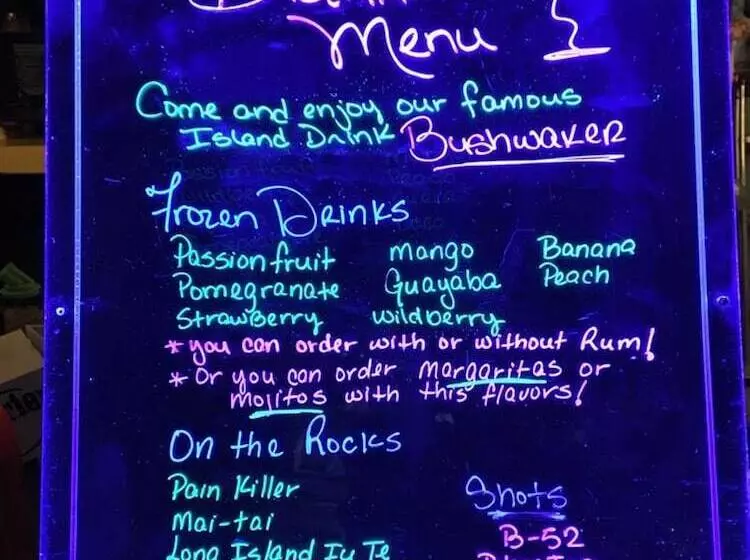 Menu
Come and enjoy our famous
Island Drink Bushwaker
Frozen Drinks
Passion fruit mango Banana
Pomegranate Guayaba Peach
Strawberry wildberry
* you can order with or without Rum!
* Or you can order margaritas or
mojitos with this flavors!
On the Rocks
Pain Killer Shots
Mai-tai B-52
Long Island Ty Te